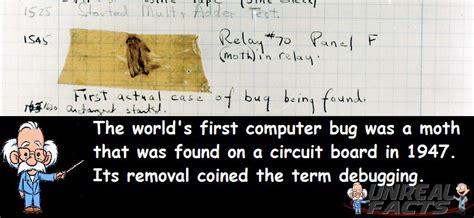 Tape (Sine check)
1525 Started Mult + Adder Test.
1545 Relay #70 Panel F
(moth) in relay.
First actual case of bug being found.
started.
The world's first computer bug was a moth
that was found on a circuit board in 1947.
Its removal coined the term debugging.
UNREAL
FACTS